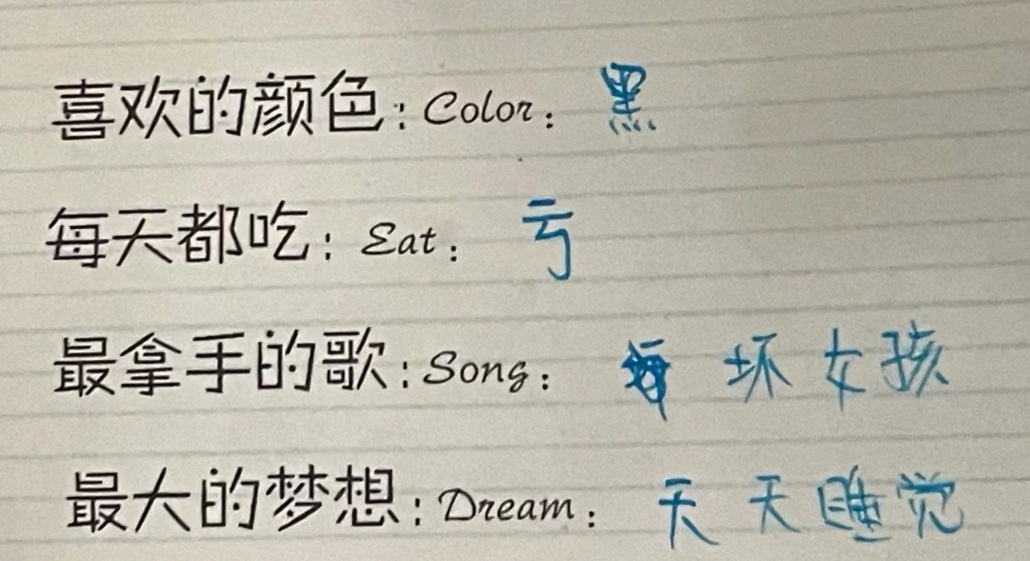 喜欢的颜色：Color：黑
每天都吃：Eat：亏
最拿手的歌：Song：坏女孩
最大的梦想：Dream：天天睡觉